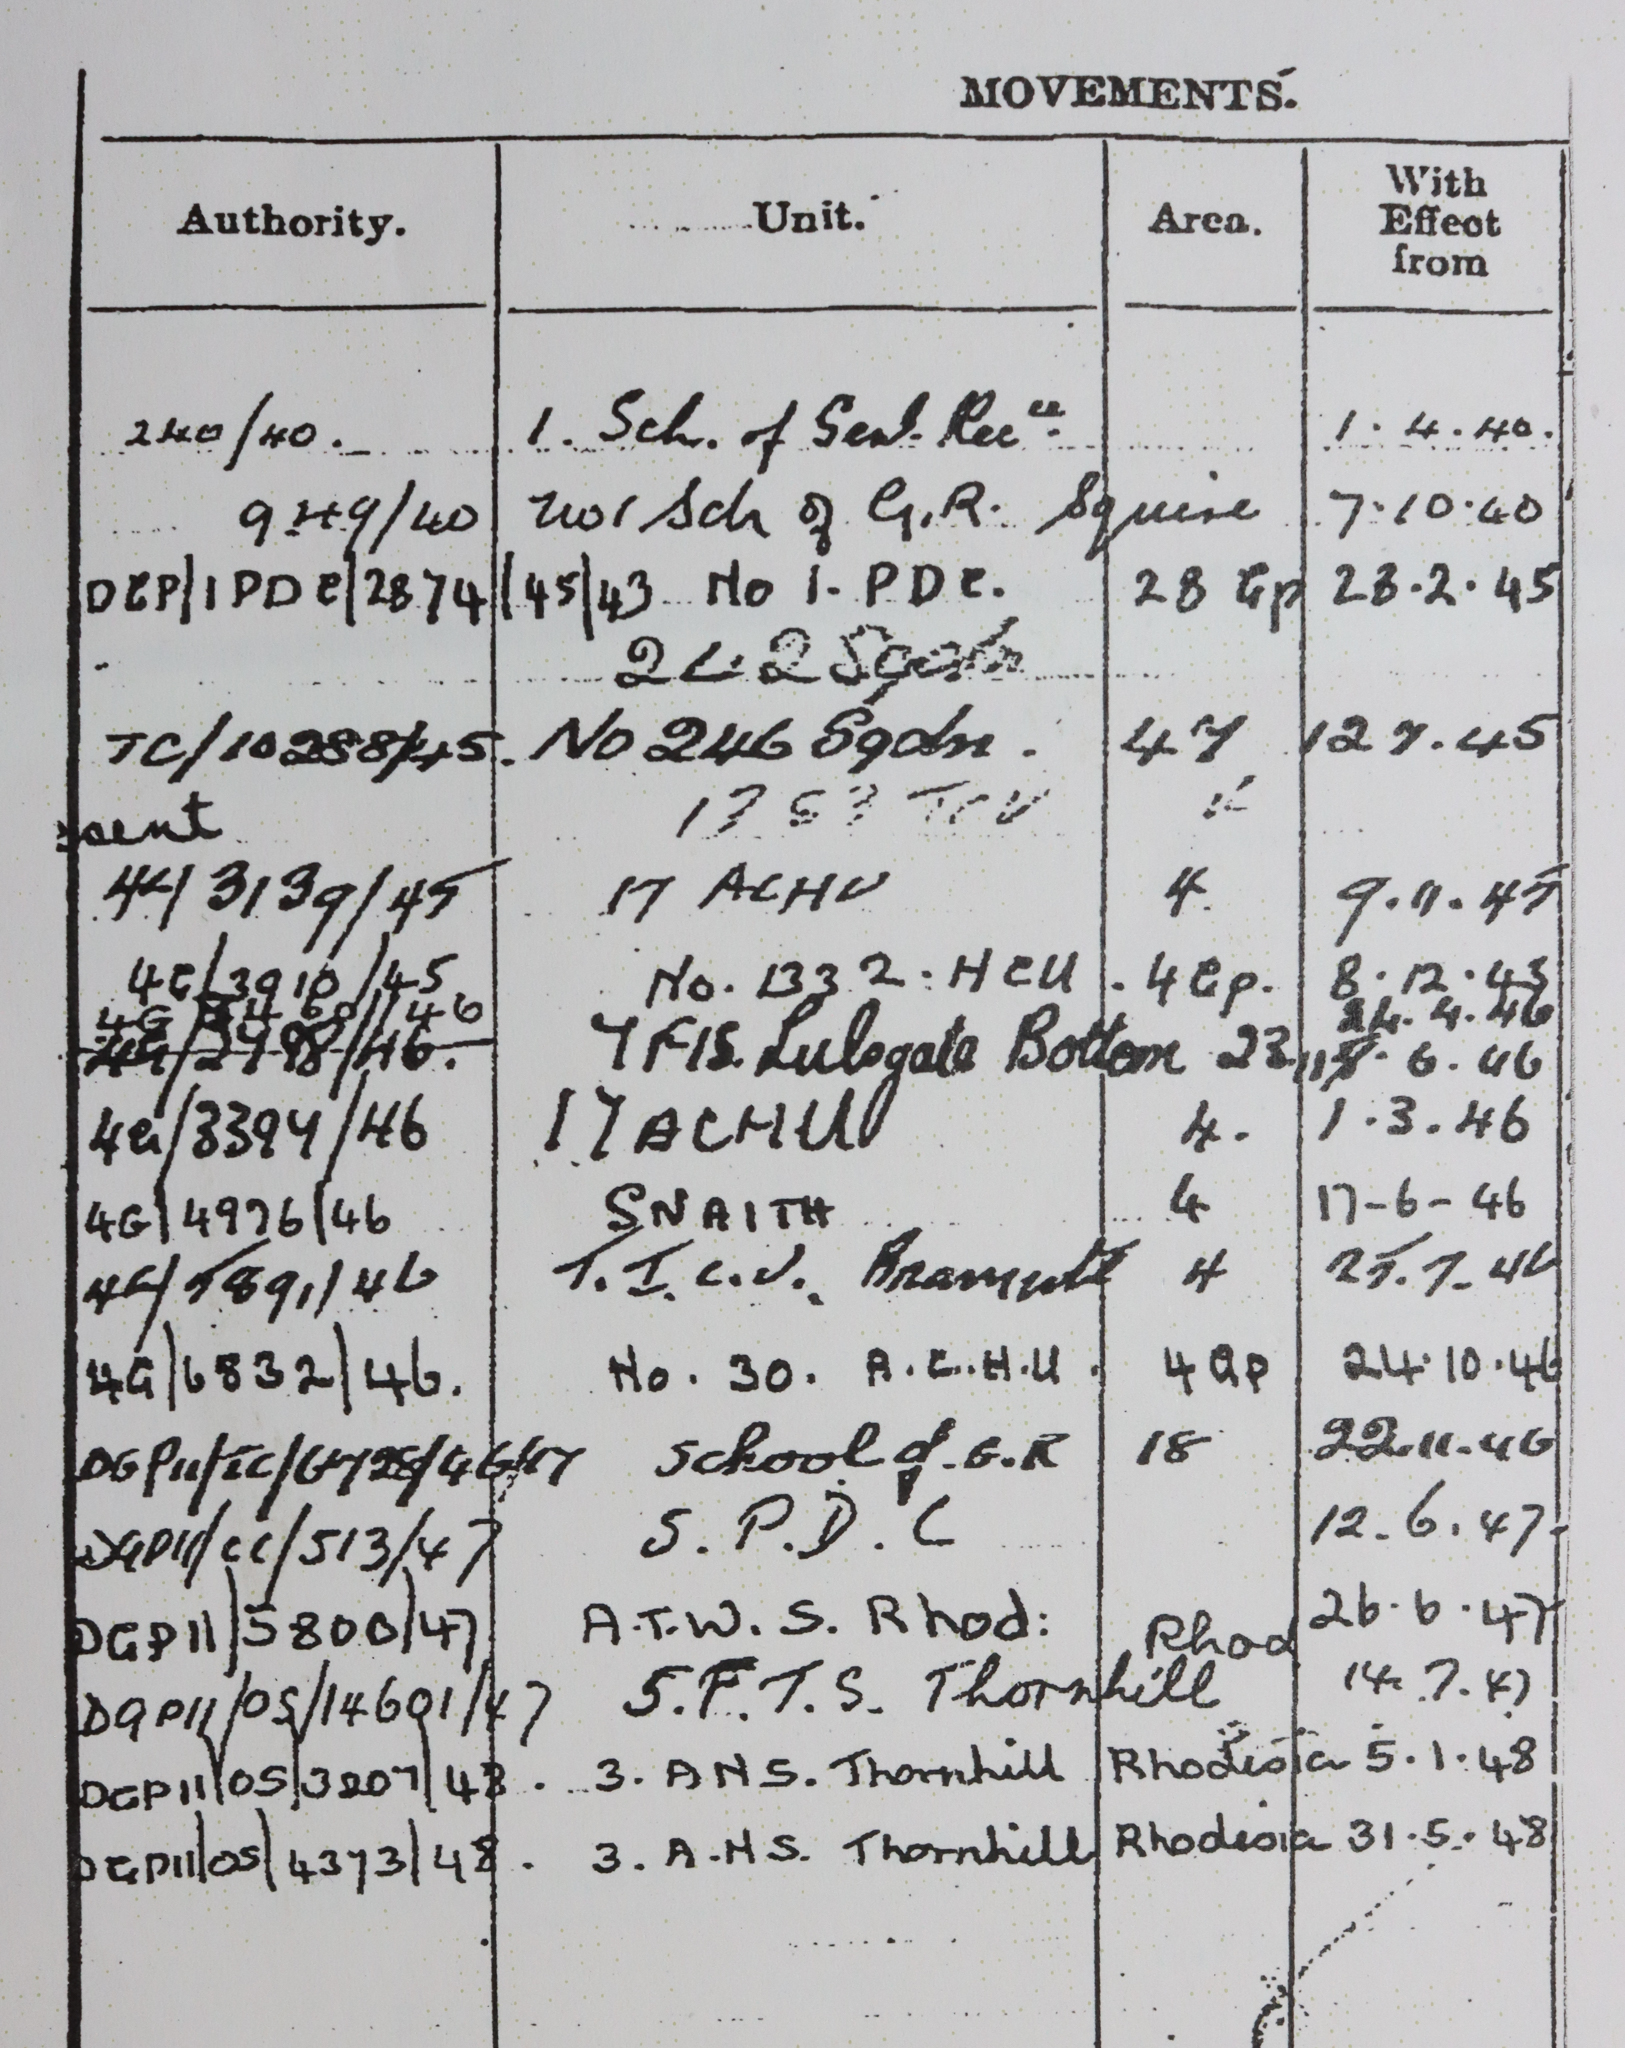 MOVEMENTS.
Authority. Unit. Area. With Effect from
240/40. 1. Sch. of Genl. Recce. 1.4.40.
949/40 No 1 Sch of G.R. Squire 7.10.40
DGP/1PDC/2874/45/43 No 1. PDC. 28 Gp 23.2.45
242 Sqdn
TC/10288/45. No 246 Sqdn. 47 12 7.45
1383 TCU
44/3139/45 17 ACHU 4. 9.11.45
4G/3910/45 No. 1332. HCU. 4 Gp. 8.12.45
4G 46 24.4.46
46. 7 FIS. Lulsgate Bottom 23 6.46
4G/3394/46 17 ACHU 4. 1.3.46
4G/4976/46 SNAITH 4 17-6-46
4G/5891/46 T.I.C.U. 4 25.7.46
4G/6832/46. No. 30. A.C.H.U. 4 Gp 24.10.46
DGP11/ 46/47 School of G.R 18 22.11.46
DGP11/CC/513/47 5. P.D.C 12.6.47
DGP11/5800/47 A.T.W.S. Rhod: Rhod 26.6.47
DGP11/OS/14601/47 5.F.T.S. Thornhill 14.7.47
DGP11/OS/3207/48. 3. ANS. Thornhill Rhodesia 5.1.48
DGP11/OS/4373/48. 3. A.N.S. Thornhill Rhodesia 31.5.48